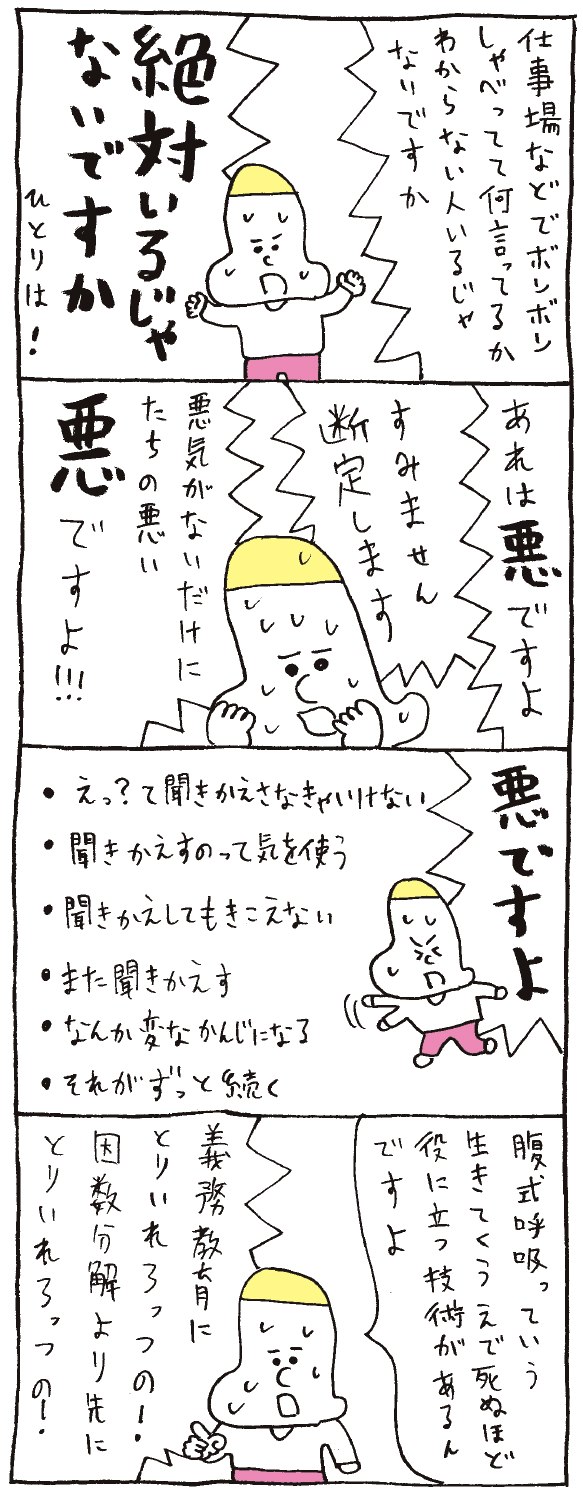 仕事場などでボソボソ
しゃべってて何言ってるか
わからない人いるじゃ
ないですか
絶対いるじゃ
ないですか
ひとりは!
あれは悪ですよ
すみません
断定します
悪気がないだけに
たちの悪い
悪ですよ!!!
悪ですよ
• えっ?て聞きかえさなきゃいけない
• 聞きかえすのって気を使う
• 聞きかえしてもきこえない
• また聞きかえす
• なんか変なかんじになる
• それがずっと続く
腹式呼吸っていう
生きてくうえで死ぬほど
役に立つ技術があるん
ですよ
義務教育に
とりいれろっつの!
因数分解より先に
とりいれろっつの!